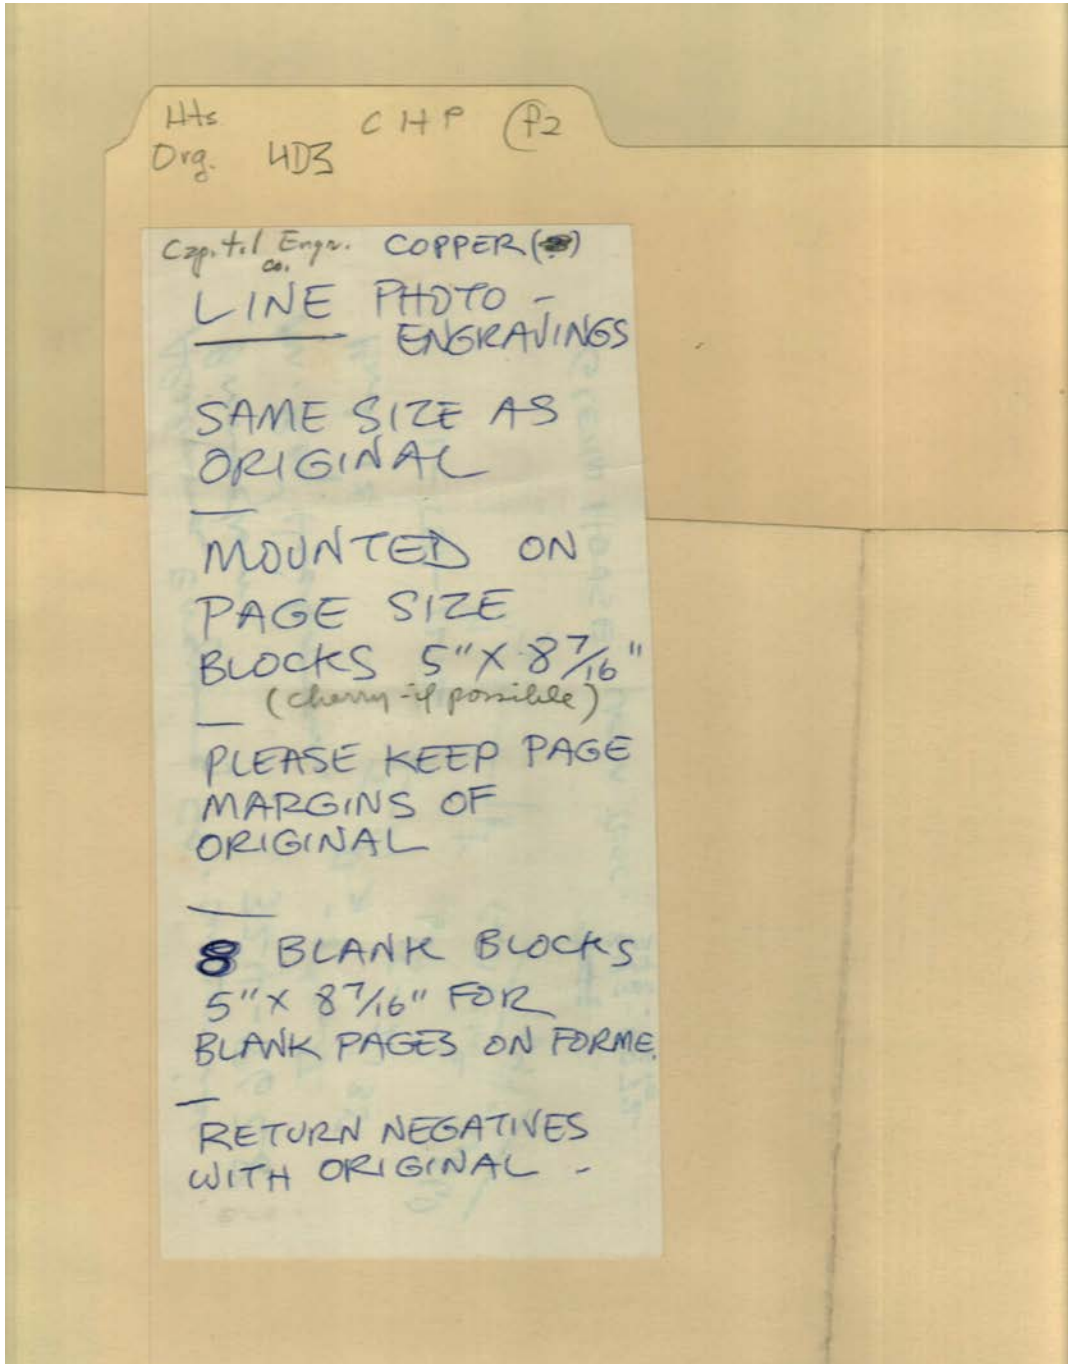 Hts CHP (P2
Org. 4D3
Capitol Engr. COPPER ( )
co.
LINE PHOTO -
ENGRAVINGS
SAME SIZE AS
ORIGINAL
MOUNTED ON
PAGE SIZE
BLOCKS 5" X 8 7/16"
(cherry - if possible)
PLEASE KEEP PAGE
MARGINS OF
ORIGINAL
8 BLANK BLOCKS
5" X 8 7/16" FOR
BLANK PAGES ON FORME.
RETURN NEGATIVES
WITH ORIGINAL -